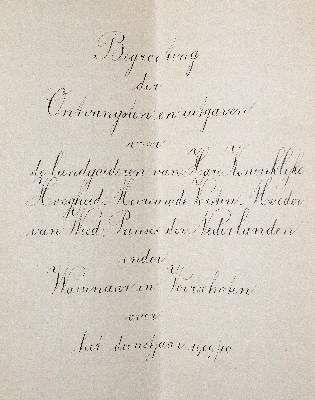 Begrooting
der
Ontvangsten en uitgaven
voor
de landgoederen van Hare Koninklijke
Hoogheid Mevrouw de Weduwe Moeder
van Wed. Prins der Nederlanden
onder
Wassenaar en Voorschoten
over
het dienstjaar